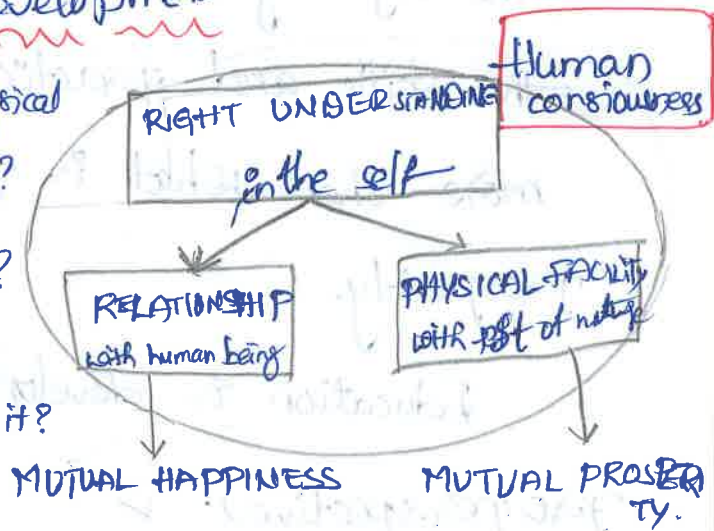 velopme
Human
consiousness
sical
RIGHT UNDERSTANDING
in the self
?
?
RELATIONSHIP
with human being
PHYSICAL FACILITY
with rest of nature
it?
MUTUAL HAPPINESS
MUTUAL PROSPER
TY.